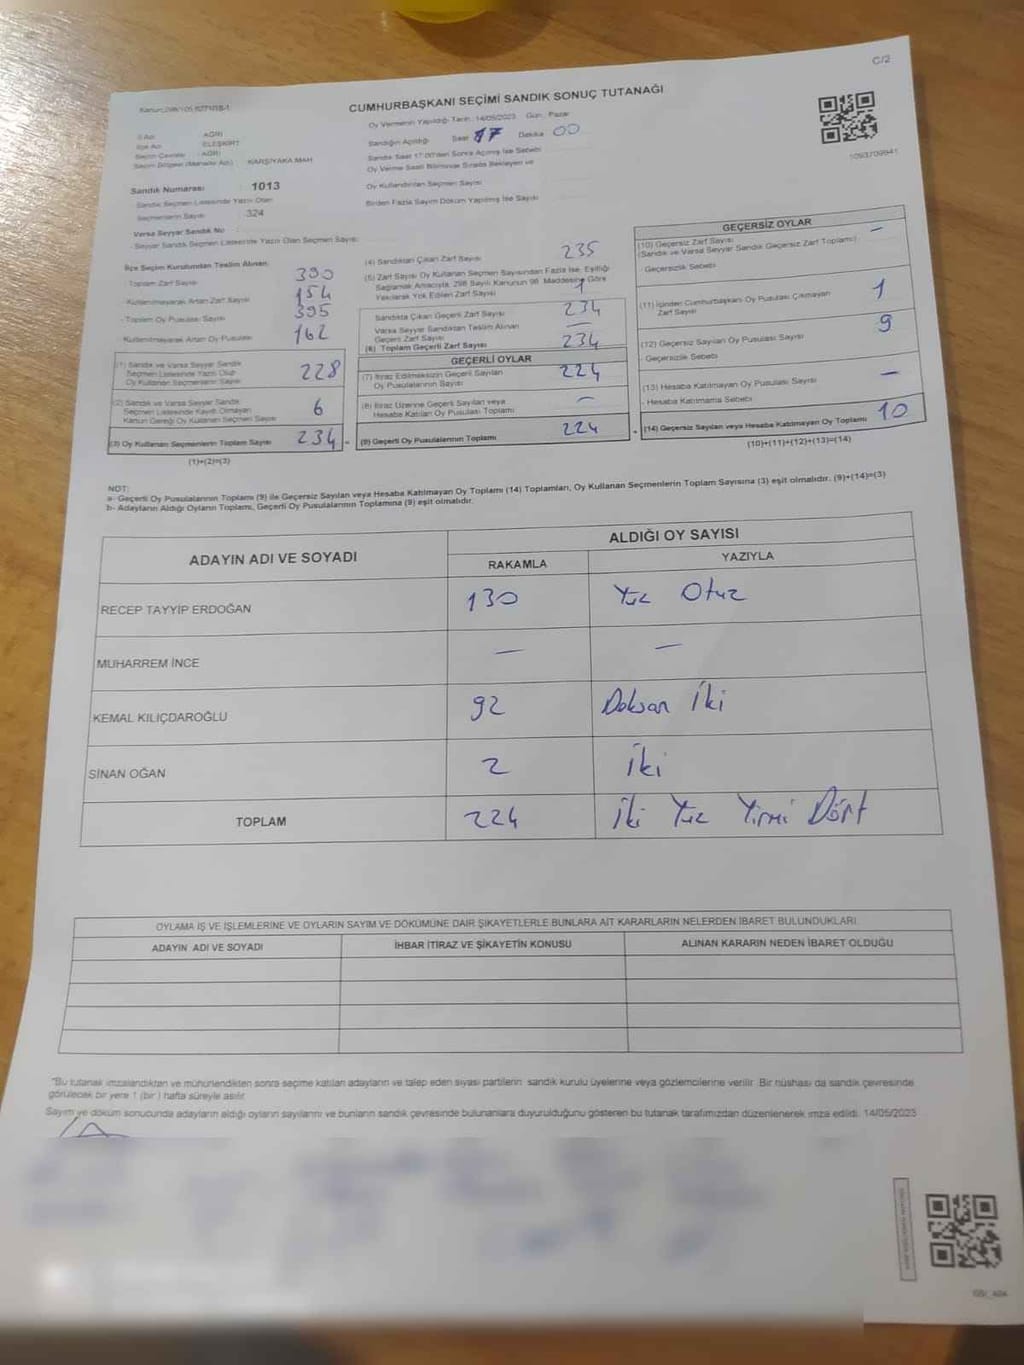 C/2
CUMHURBAŞKANI SEÇİMİ SANDIK SONUÇ TUTANAĞI
Oy Vermenin Yapıldığı Tarih : 14/05/2023 Gün : Pazar
İl Adı : AĞRI
İlçe Adı : ELEŞKİRT
Seçim Çevresi : AĞRI
Seçim Bölgesi (Mahalle Adı) : KARŞIYAKA MAH
Sandığın Açıldığı Saat 17 Dakika 00
Sandık Saat 17.00'den Sonra Açılmış İse Sebebi
Oy Verme Saati Bitiminde Sırada Bekleyen ve
Oy Kullandırılan Seçmen Sayısı
Birden Fazla Sayım Döküm Yapılmış İse Sayısı
1093709941
Sandık Numarası : 1013
Sandık Seçmen Listesinde Yazılı Olan
Seçmenlerin Sayısı : 324
Varsa Seyyar Sandık No :
- Seyyar Sandık Seçmen Listesinde Yazılı Olan Seçmen Sayısı
İlçe Seçim Kurulundan Teslim Alınan
- Toplam Zarf Sayısı 390
- Kullanılmayarak Artan Zarf Sayısı 154
- Toplam Oy Pusulası Sayısı 395
- Kullanılmayarak Artan Oy Pusulası 162
(1) Sandık ve Varsa Seyyar Sandık
Seçmen Listesinde Yazılı Olup
Oy Kullanan Seçmenlerin Sayısı 228
(2) Sandık ve Varsa Seyyar Sandık
Seçmen Listesinde Kayıtlı Olmayan
Kanun Gereği Oy Kullanan Seçmen Sayısı 6
(3) Oy Kullanan Seçmenlerin Toplam Sayısı 234
(1)+(2)=(3)
(4) Sandıktan Çıkan Zarf Sayısı 235
(5) Zarf Sayısı Oy Kullanan Seçmen Sayısından Fazla İse, Eşitliği
Sağlamak Amacıyla, 298 Sayılı Kanunun 98. Maddesine Göre
Yakılarak Yok Edilen Zarf Sayısı 1
Sandıkta Çıkan Geçerli Zarf Sayısı 234
Varsa Seyyar Sandıktan Teslim Alınan
Geçerli Zarf Sayısı —
(6) Toplam Geçerli Zarf Sayısı 234
GEÇERLİ OYLAR
(7) İtiraz Edilmeksizin Geçerli Sayılan
Oy Pusulalarının Sayısı 224
(8) İtiraz Üzerine Geçerli Sayılan veya
Hesaba Katılan Oy Pusulası Toplamı —
(9) Geçerli Oy Pusulalarının Toplamı 224
GEÇERSİZ OYLAR
(10) Geçersiz Zarf Sayısı —
(Sandık ve Varsa Seyyar Sandık Geçersiz Zarf Toplamı)
- Geçersizlik Sebebi
(11) İçinden Cumhurbaşkanı Oy Pusulası Çıkmayan
Zarf Sayısı 1
(12) Geçersiz Sayılan Oy Pusulası Sayısı 9
- Geçersizlik Sebebi
(13) Hesaba Katılmayan Oy Pusulası Sayısı —
- Hesaba Katılmama Sebebi
(14) Geçersiz Sayılan veya Hesaba Katılmayan Oy Toplamı 10
(10)+(11)+(12)+(13)=(14)
NOT:
a- Geçerli Oy Pusulalarının Toplamı (9) ile Geçersiz Sayılan veya Hesaba Katılmayan Oy Toplamı (14) Toplamları, Oy Kullanan Seçmenlerin Toplam Sayısına (3) eşit olmalıdır. (9)+(14)=(3)
b- Adayların Aldığı Oyların Toplamı, Geçerli Oy Pusulalarının Toplamına (9) eşit olmalıdır.
ADAYIN ADI VE SOYADI ALDIĞI OY SAYISI
RAKAMLA YAZIYLA
RECEP TAYYİP ERDOĞAN 130 Yüz Otuz
MUHARREM İNCE — —
KEMAL KILIÇDAROĞLU 92 Doksan İki
SİNAN OĞAN 2 İki
TOPLAM 224 İki Yüz Yirmi Dört
OYLAMA İŞ VE İŞLEMLERİNE VE OYLARIN SAYIM VE DÖKÜMÜNE DAİR ŞİKAYETLERLE BUNLARA AİT KARARLARIN NELERDEN İBARET BULUNDUKLARI
ADAYIN ADI VE SOYADI İHBAR İTİRAZ VE ŞİKAYETİN KONUSU ALINAN KARARIN NEDEN İBARET OLDUĞU
"Bu tutanak imzalandıktan ve mühürlendikten sonra seçime katılan adayların ve talep eden siyasi partilerin sandık kurulu üyelerine veya gözlemcilerine verilir. Bir nüshası da sandık çevresinde
görülecek bir yere 1 (bir ) hafta süreyle asılır.
Sayım ve döküm sonucunda adayların aldığı oyların sayılarını ve bunların sandık çevresinde bulunanlara duyurulduğunu gösteren bu tutanak tarafımızdan düzenlenerek imza edildi. 14/05/2023